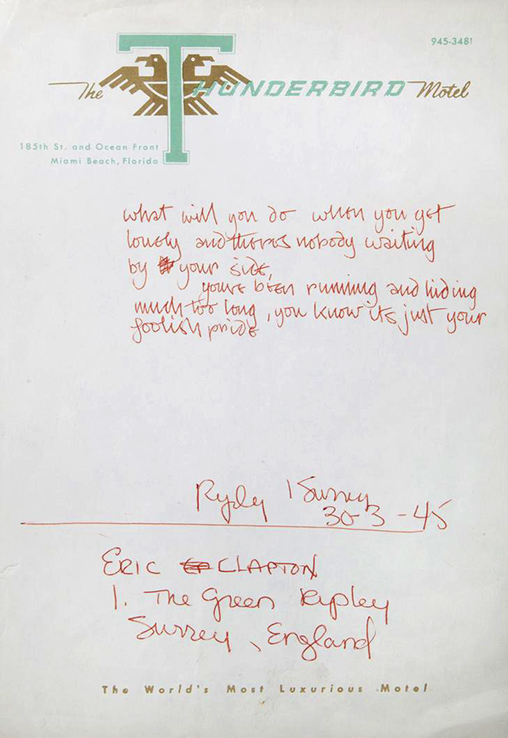 945-3481
The THUNDERBIRD Motel
185th St. and Ocean Front
Miami Beach, Florida
what will you do when you get
lonely and theres nobody waiting
by your side,
youve been running and hiding
much too long, you know its just your
foolish pride
Ripley, Surrey
30-3-45
ERIC CLAPTON
1. The Green Ripley
Surrey, England
The World's Most Luxurious Motel